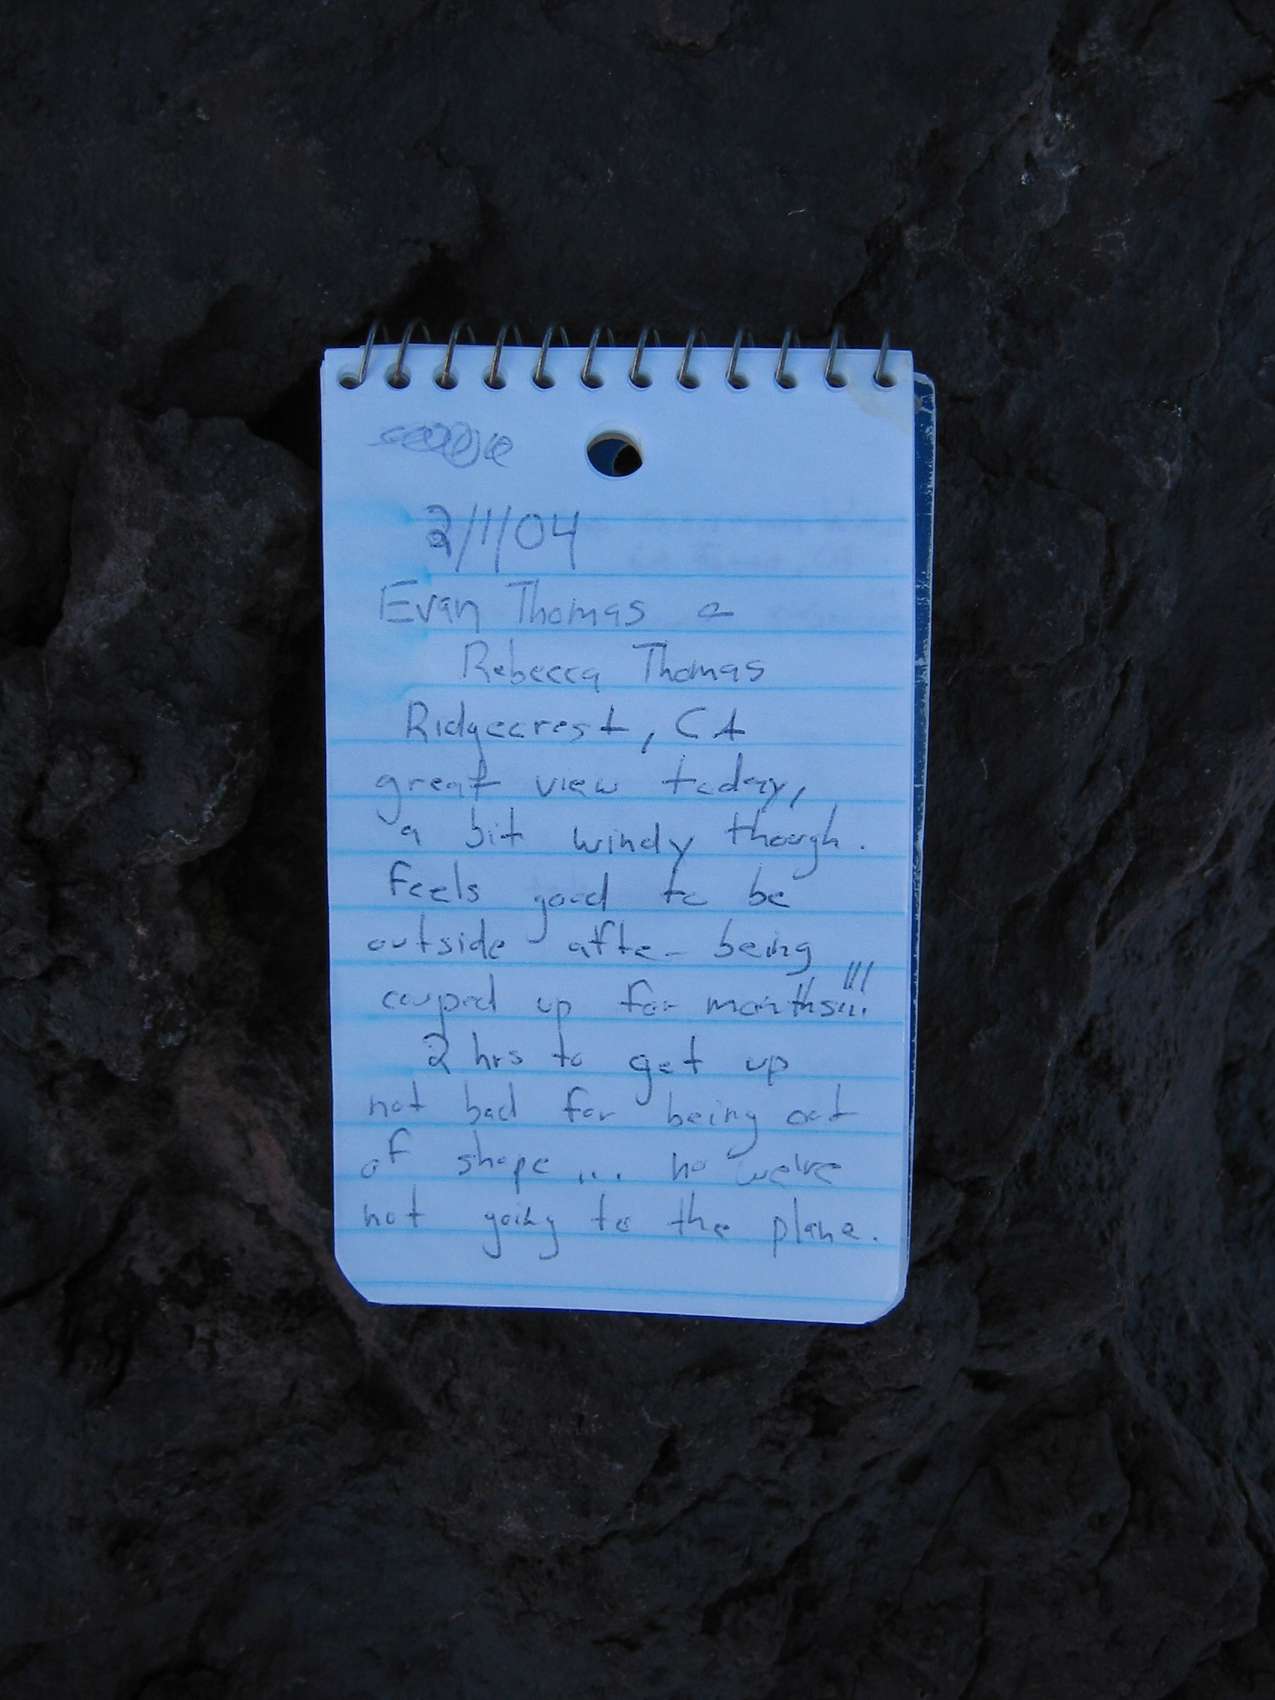 2/1/04
Evan Thomas &
Rebecca Thomas
Ridgecrest, CA
great view today,
a bit windy though.
feels good to be
outside after being
couped up for months!!!
2 hrs to get up
not bad for being out
of shape ... no we're
not going to the plane.